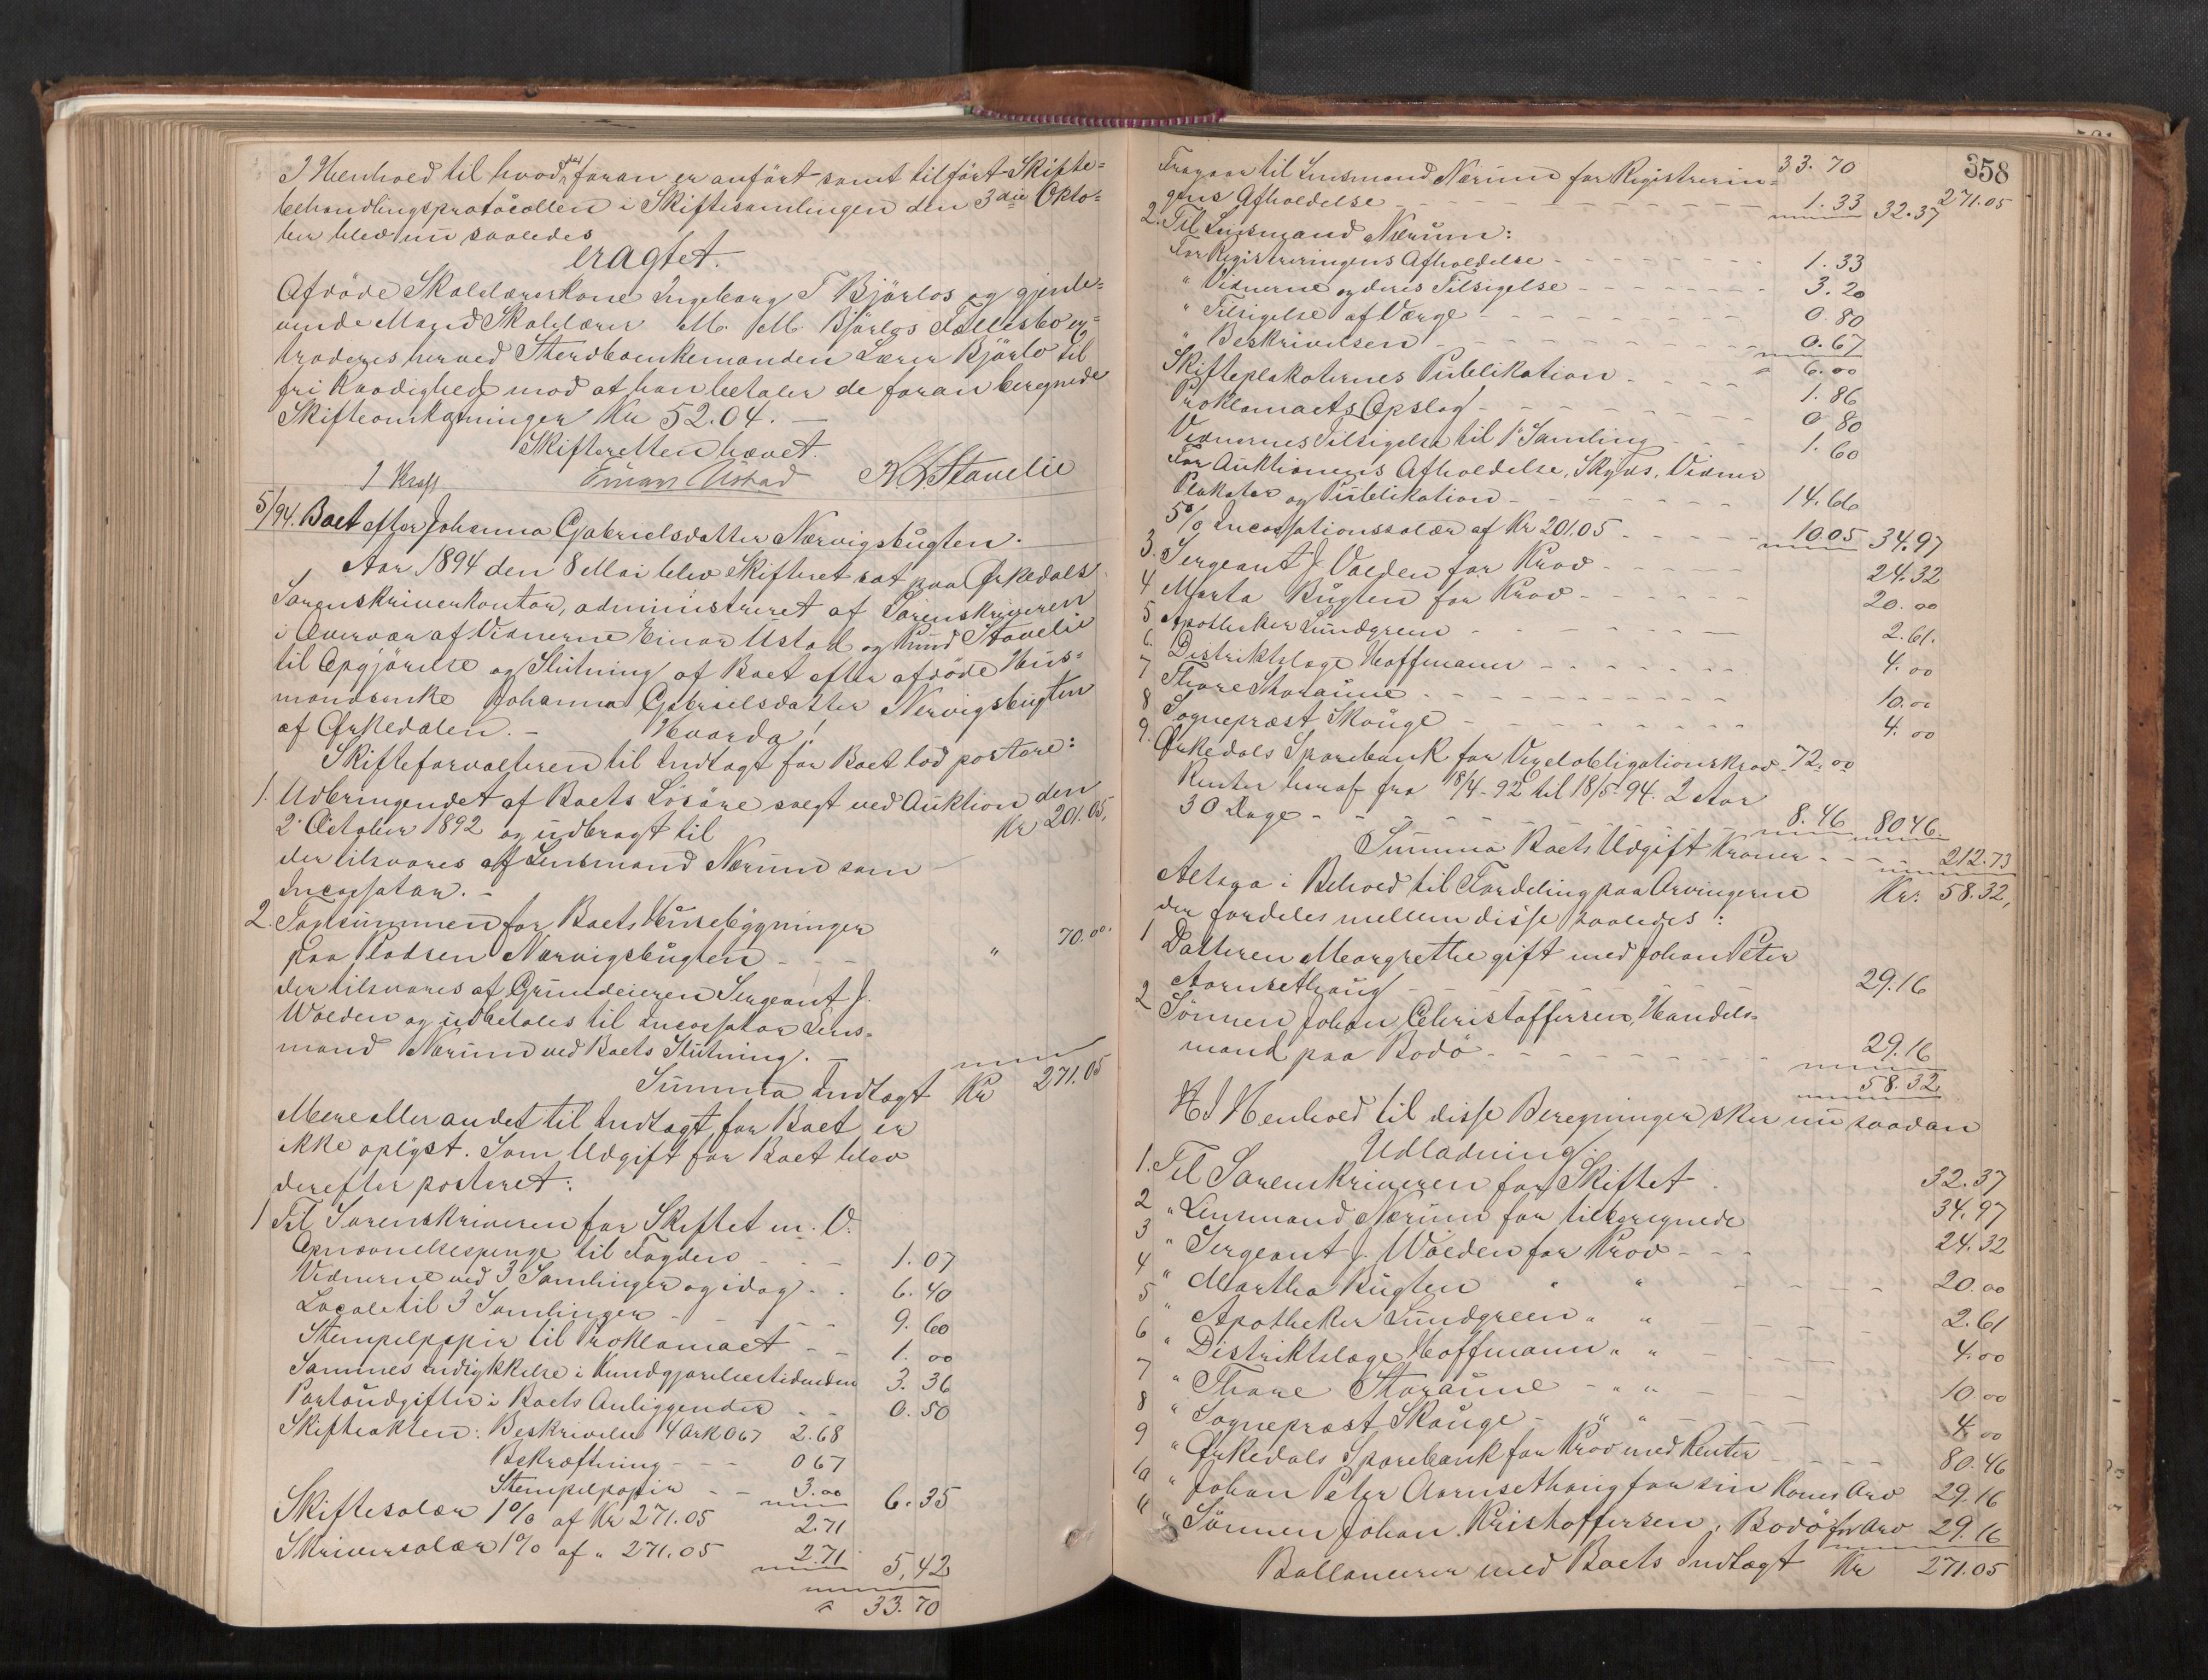 I Henhold til hvad der foran er anført samt tilført Skifte-
behandlingsprotocollen i Skiftesamlingen den 3die Okto-
ber blev nu saaledes
eragtet.
Afdøde Skolelærerkone Ingeborg T Bjørlos og gjenle-
vende Mand Skolelærer M. M. Bjørlos Fællesbo ex-
traderes herved Sterboenkemanden Lærer Bjørlo til
fri Raadighed mod at han betaler de foran beregnede
Skifteomkostninger Kr 52.04. —
Skifteretten hævet.
I Kraft Einar Ustad K. L. Stavelie
5/94. Boet efter Johanna Gabrielsdatter Nærvigsbugten.
Aar 1894 den 8 Mai blev Skifteret sat paa Ørkedals
Sorenskriverkontor, administreret af Sorenskriveren
i Overvær af Vidnerne Einar Ustad og Knud Stavelie
til Opgjørelse og Slutning af Boet efter afdøde Hus-
mandsenke Johanna Gabrielsdatter Nervigsbugten
af Ørkedalen. — Hvorda!
Skifteforvalteren til Indtægt for Boet lod postere:
1. Udbringendet af Boets Løsøre solgt ved Auktion den
2' October 1892 og udbragt til Kr 201.05,
der tilsvares af Lensmand Nærum som
Incassator. —
2. Taxtsummen for Boets Husebygninger
paa Pladsen Nærvigsbugten - - - " 70.00.
der tilsvares af Grundeieren Sergeant J.
Wolden og udbetales til Incassator Lens-
mand Nærum ved Boets Slutning. —
Summa Indtægt Kr 271.05
Mere eller andet til Indtægt for Boet er
ikke oplyst. Som Udgift for Boet blev
derefter posteret:
1 Til Sorenskriveren for Skiftet m. V.
Opnævnelsespenge til Fogden - - - 1.07
Vidnerne ved 3 Samlinger og idag - - 6.40
Locale til 3 Samlinger - - - - 9.60
Stempelpapir til Proklamaet - - 1.00
Sammes Indrykkelse i Kundgjørelsestidenden 3.36
Portoudgifter i Boets Anliggender - - 0.50
Skifteakten: Beskrivelse 4 Ark 067 2.68
Bekræftning - - - 067
Stempelpapir - - 3.00 6.35
Skiftesalær 1% af Kr 271.05 2.71
Skriversalær 1% af " 271.05 2.71 5,42
33.70
358
33.70
Fragaar til Lensmand Nærum for Registrerin-
gens Afholdelse - - - - - - 1.33 32.37 271.05
2. Til Lensmand Nærum:
For Registreringens Afholdelse - - - - - 1.33
" Vidnerne og deres Tilsigelse - - - - - 3.20
" Tilsigelse af Værge - - - - - - 0.80
" Beskrivelsen - - - - - - 0.67
6.00
Skifteplakaternes Publikation - - - - 1.86
Proklamaets Opslag - - - - - - 0 80
Vidnernes Tilsigelse til 1' Samling - - - 1.60
For Auktionens Afholdelse, Skyds, Vidner
Plakater og Publikation - - - - - - 14.66
5% Incassationssalær af Kr 201.05 - - - - 10.05 34.97
3. Sergeant J. Volden for Krav - - - - - 24.32
4 Marta Bugten for Krav - - - - - 20.00
5 Apotheker Lundgreen - - - - - 2.61.
6. Distriktslæge Hoffmann - - - - - 4.00
7 Thore Storaune - - - - - - 10.00
8 Sognepræst Skauge - - - - - - 4.00
9. Ørkedals Sparebank for Vexelobligationskrav 72.00
Renter heraf fra 18/4-92 til 18/5-94. 2 Aar
30 Dage - - - - - - - 8.46 8046
Summa Boets Udgift Kroner - - - 212.73
Altsaa i Behold til Fordeling paa Arvingerne Kr: 58.32,
der fordeles mellem disse saaledes:
1 Datteren Margrethe gift med Johan Peter
Aarnsethaug - - - - - - 29.16
2 Sønnen Johan Christoffersen, Handels-
mand paa Bodø - - - - - - 29.16
58.32
I Henhold til disse Beregninger sker nu saadan
Udladning.
1. Til Sorenskriveren for Skiftet - 32.37
2 " Lensmand Nærum for tilberegnede 34.97
3 " Sergeant J. Wolden for Krav - - - 24.32
4 " Martha Bugten " " - - - 20.00
5 " Apotheker Lundgreen " " - - - 2.61
6 " Distriktslæge Hoffmann " " - - - 4.00
7 " Thore Storaune - " " - - - 10.00
8 " Sognepræst Skauge - " " - - - 4.00
9 " Ørkedals Sparebank for Krav med Renter - - - 80.46
10 " Johan Peter Aarnsethaug for sin Kones Arv 29.16
11 " Sønnen Johan Kristoffersen, Bodø for Arv 29.16
Ballancerer med Boets Indtægt Kr 271.05